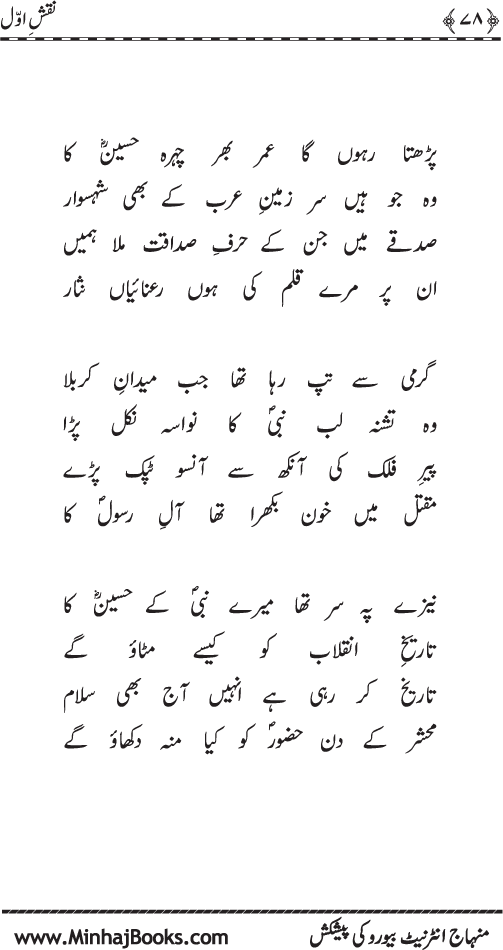 ﴿۷۸﴾ نقشِ اوّل
پڑھتا رہوں گا عمر بھر چہرہ حسینؓ کا
وہ جو ہیں سر زمینِ عرب کے بھی شہسوار
صدقے میں جن کے حرفِ صداقت ملا ہمیں
ان پر مرے قلم کی ہوں رعنائیاں نثار
گرمی سے تپ رہا تھا جب میدانِ کربلا
وہ تشنہ لب نبیؐ کا نواسہ نکل پڑا
پیرِ فلک کی آنکھ سے آنسو ٹپک پڑے
مقتل میں خون بکھرا تھا آلِ رسولؐ کا
نیزے پہ سر تھا میرے نبیؐ کے حسینؓ کا
تاریخِ انقلاب کو کیسے مٹاؤ گے
تاریخ کر رہی ہے انہیں آج بھی سلام
محشر کے دن حضورؐ کو کیا منہ دکھاؤ گے
منہاج انٹرنیٹ بیورو کی پیشکش www.MinhajBooks.com